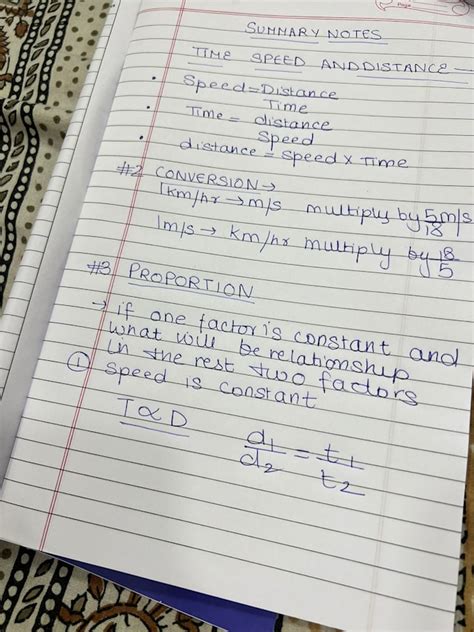 Page
SUMMARY NOTES
TIME SPEED AND DISTANCE —
• Speed = Distance
Time
• Time = distance
Speed
• distance = Speed x Time
#2 CONVERSION →
1km/hr → m/s multiply by 5/18 m/s
1m/s → km/hr multiply by 18/5
#3 PROPORTION
→ if one factor is constant and
what will be relationship
in the rest two factors
① speed is constant
T ∝ D d1/d2 = t1/t2